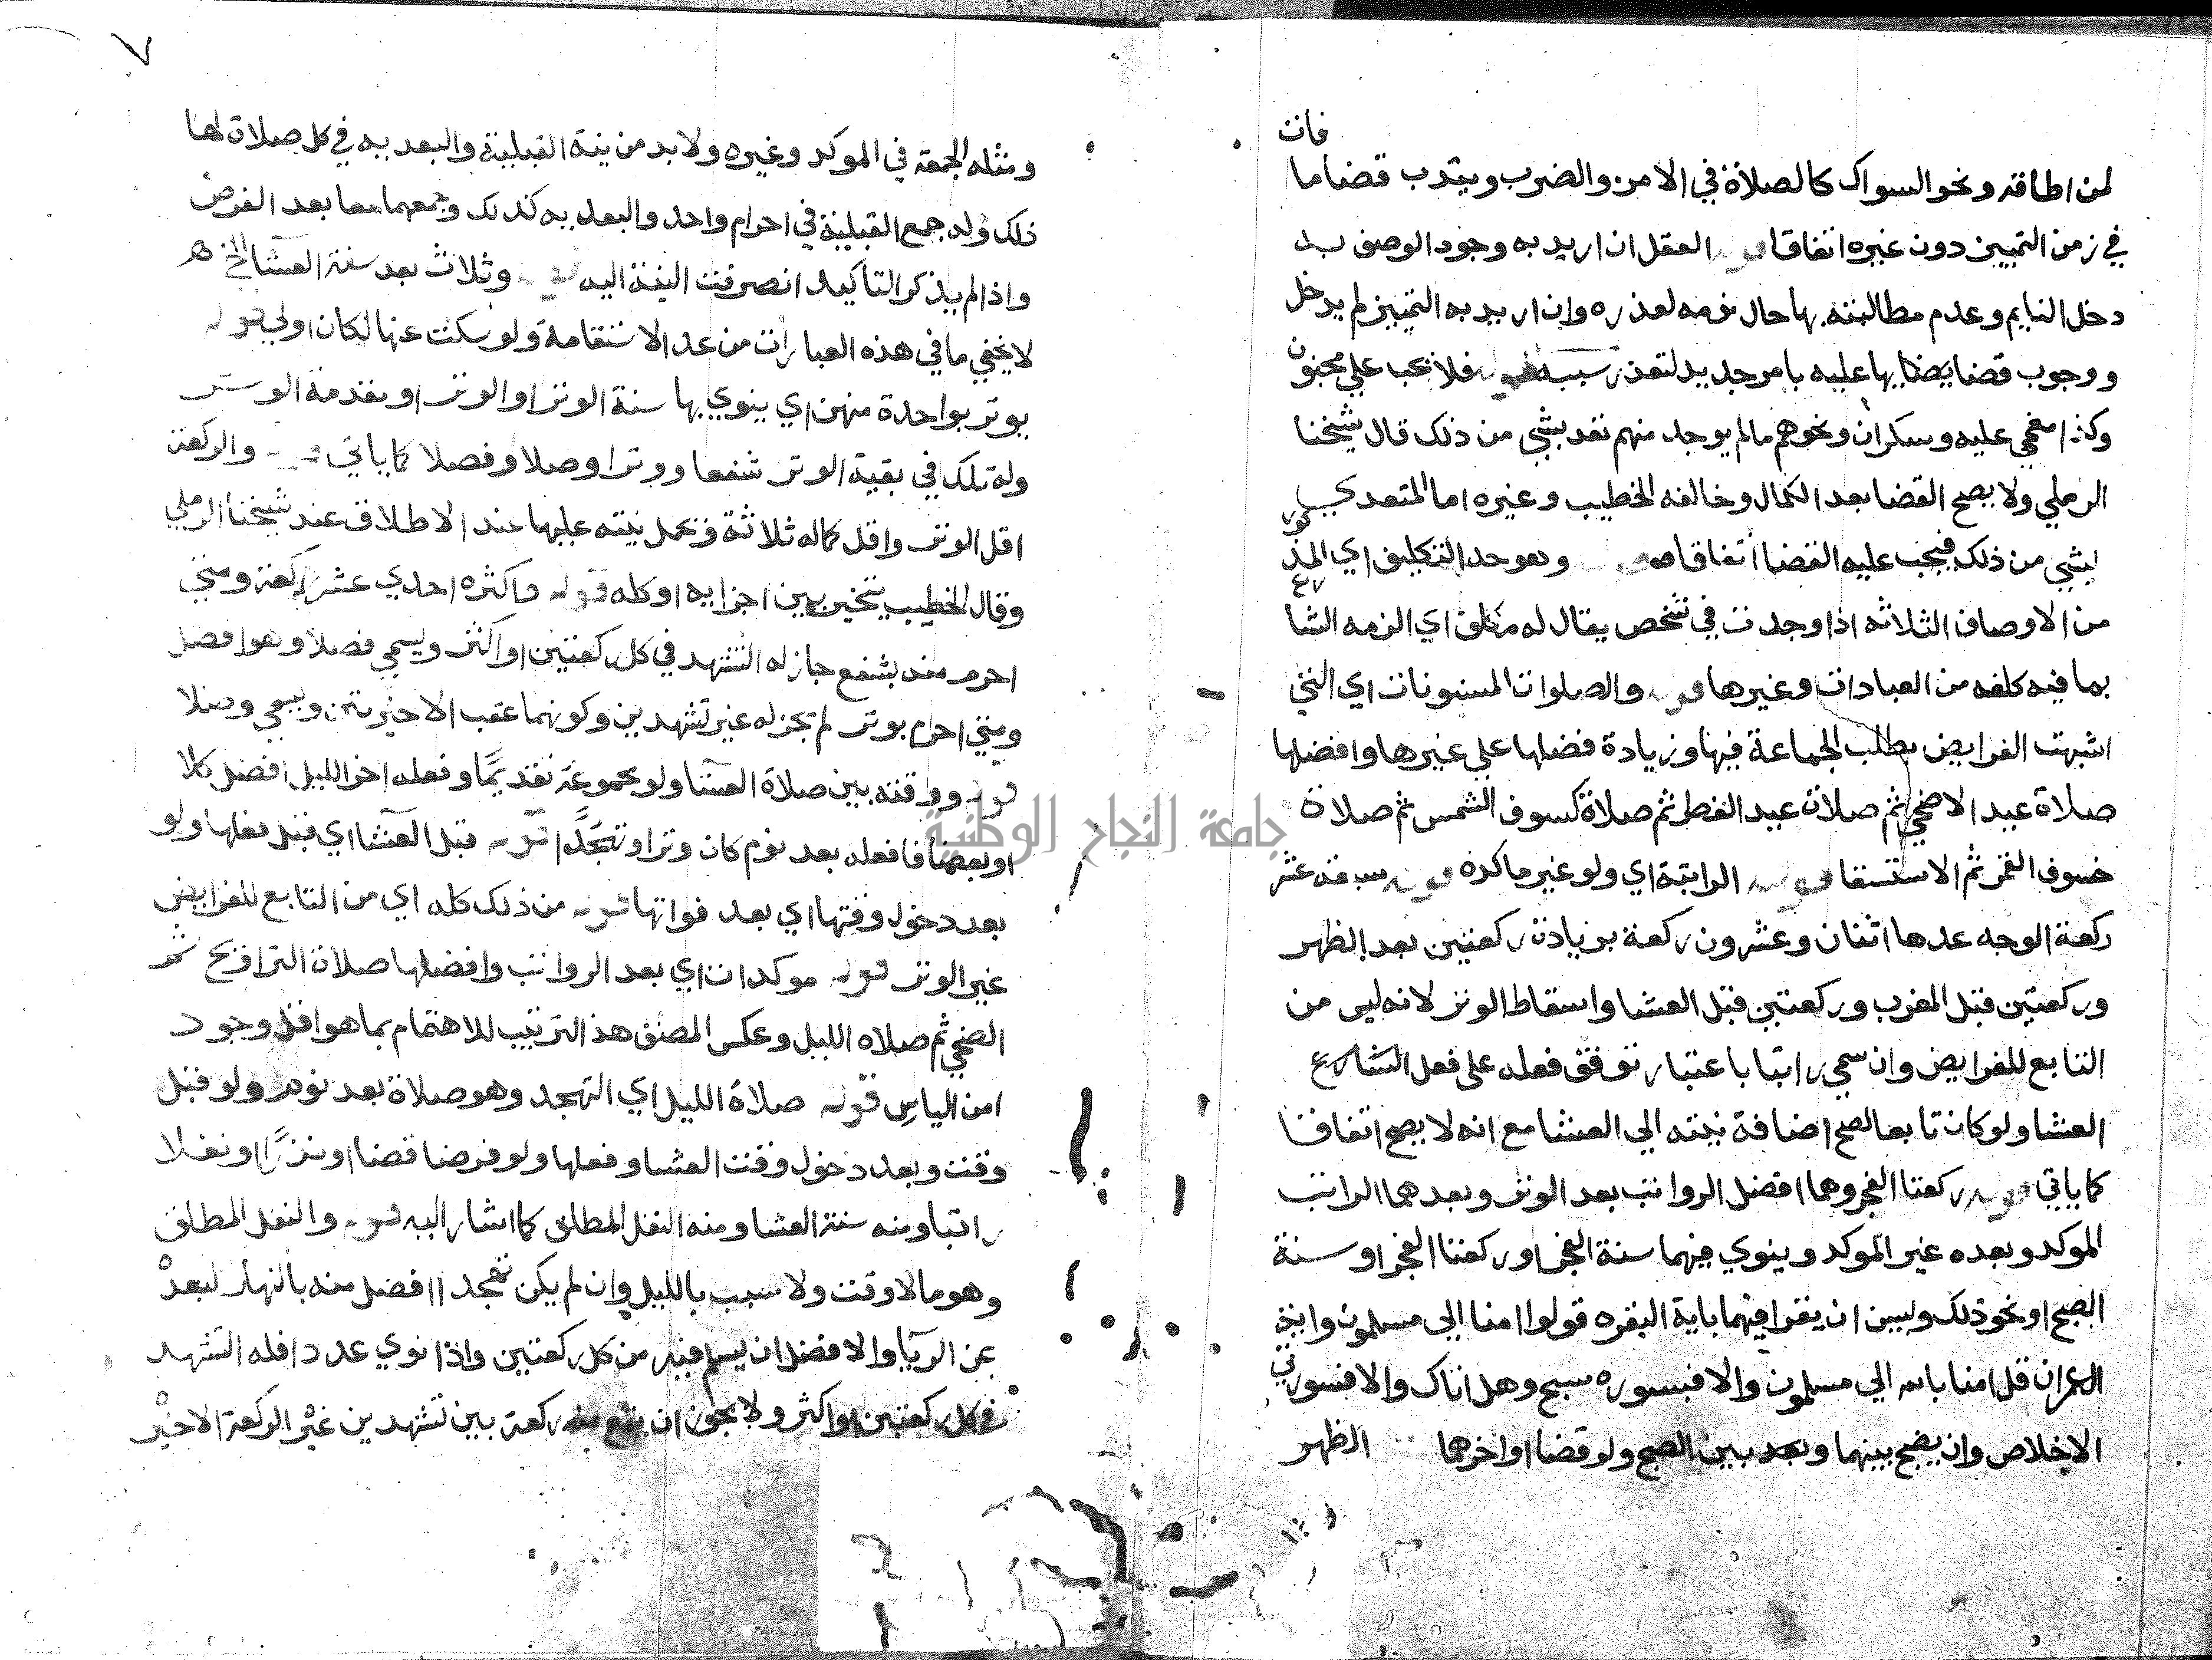 فات
لمن اطاقه ونحو السواك كالصلاة في الامر والضرب ويندب قضا ما
في زمن التمييز دون غيره اتفاقا قوله العقل ان اريد به وجود الوصف به
دخل النايم وعدم مطالبته بها حال نومه لعذره وان اريد به التمييز لم يدخل
ووجوب قضايها عليه بامر جديد لتقدر سببه قوله فلا تجب علي مجنون
وكذا مغمي عليه وسكران ونحوهم مالم يوجد منهم تعد بشي من ذلك قال شيخنا
الرملي ولا يصح القضا بعد الكمال وخالفه الخطيب وغيره اما المتعدي
بشي من ذلك فيجب عليه القضا اتفاقا قوله وهو حد التكليف اي المذكور
من الاوصاف الثلاثه اذا وجدت في شخص يقال له مكلف اي الزمه الشارع
بما فيه كلفه من العبادات وغيرها قوله والصلوات المسنونات اي التي
اشبهت الفرايض بطلب الجماعة فيها وزيادة فضلها علي غيرها وافضلها
صلاة عيد الاضحي ثم صلاة عيد الفطر ثم صلاة كسوف الشمس ثم صلاة
خسوف القمر ثم الاستسقا قوله الراتبة اي ولو غير ماكدة قوله سبعة عشر
ركعة الوجه عدها اثنان وعشرون ركعة بزيادة ركعتين بعد الظهر
وركعتين قبل المغرب وركعتين قبل العشا واسقاط الوتر لانه ليس من
التابع للفرايض وان سمي راتبا باعتبار توقف فعله على فعل الشارع
العشا ولو كان تابعا لصح اضافة نيته الي العشا مع انه لا يصح اتفاقا
كما ياتي قوله ركعتا الفجر وهما افضل الرواتب بعد الوتر وبعدهما الراتب
الموكد وبعده غير الموكد وينوي فيهما سنة الفجر او ركعتا الفجر او سنة
الصبح او نحو ذلك ويسن ان يقرا فيهما باية البقره قولوا امنا الي مسلمون واية
ال عمران قل امنا بالله الي مسلمون والا فبسوره سبح وهل اتاك والا فسورتي
الاخلاص وان يضجع بينهما وبعد بين الصبح ولو قضا او اخرهما الظهر
٧
ومثله الجمعة في الموكد وغيره ولابد من نية القبلية والبعديه في كل صلاة لها
ذلك وله جمع القبلية في احرام واحد والبعديه كذلك وجمعهما معا بعد الفرض
واذا لم يذكر التاكيد انصرفت النية اليه قوله وثلاث بعد سنة العشا الخ
لا يخفي ما في هذه العبارات من عدم الاستقامة ولو سكت عنها لكان اولي قوله
يوتر بواحدة منهن اي ينوي بها سنة الوتر او الوتر او مقدمة الوتر
وله تلك في بقية الوتر شفعا ووترا وصلا وفصلا كما ياتي قوله والركعة
اقل الوتر واقل كماله ثلاثة وتحمل نيته عليها عند الاطلاق عند شيخنا الرملي
وقال الخطيب يتخير بين اجزايه او كله قوله واكثره احدي عشر ركعة ومتي
احرم منه بشفع جاز له التشهد في كل ركعتين او اكثر ويسمي فصلا وهو افضل
ومتي احرم بوتر لم يجز له غير تشهدين وكونهما عقب الاخيرتين ويسمي وصلا
قوله ووقته بين صلاة العشا ولو مجموعة تقديمًا وفعله اخر الليل افضل كلا
او بعضا فافعله بعد نوم كان وترا وتهجدًا قوله قبل العشا اي قبل فعلها ولو
بعد دخول وقتها اي بعد فواتها قوله من ذلك كله اي من التابع للفرايض
غير الوتر قوله موكدات اي بعد الرواتب وافضلها صلاة التراويح ثم
الضحي ثم صلاه الليل وعكس المصنف هذا الترتيب للاهتمام بما هو اقل وجود
امن الياس قوله صلاة الليل اي التهجد وهو صلاة بعد نوم ولو قبل
وقت وبعد دخول وقت العشا وفعلها ولو فرضا قضا او نذرًا او نفلا
راتبا ومنه سنة العشا ومنه النفل المطلق كما اشار اليه قوله والنفل المطلق
وهو مالا وقت ولا سبب بالليل وان لم يكن تهجدا افضل منه بالنهار لبعده
عن الريا والافضل ان يسلم فيه من كل ركعتين واذا نوي عددا فله التشهد
في كل ركعتين او اكثر ولا يجوز ان يقع منه ركعة بين تشهدين غير الركعة الاخيره
جامعة النجاح الوطنية